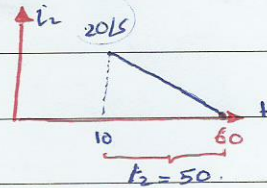 i₂
20/5
t
10
60
t₂ = 50.